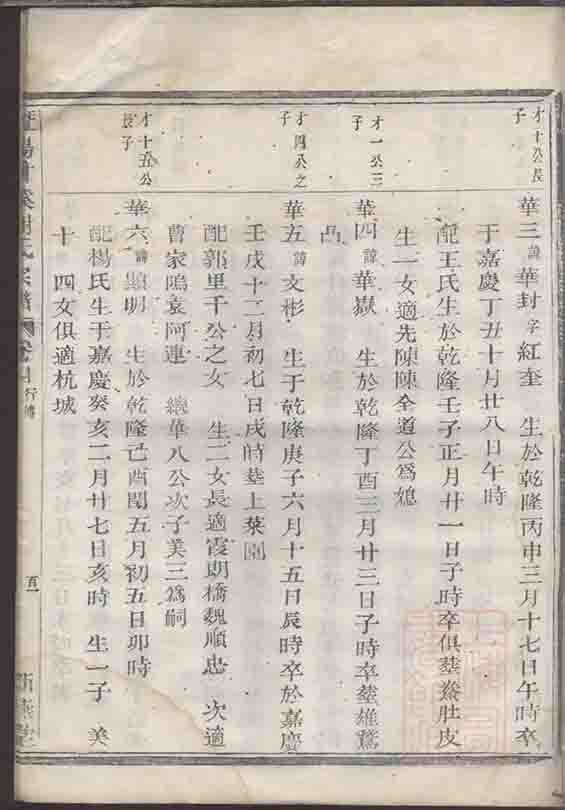 才十公長
子
華三諱華封字紅奎 生於乾隆丙申三月十七日午時卒
于嘉慶丁丑十月廿八日午時
配王氏生於乾隆壬子正月廿一日子時卒俱塟 肚皮
生一女適先陳陳全道公爲媳
才一公三
子
華四諱華嶽 生於乾隆丁酉三月廿三日子時卒塟雄鵞
凸
才四公之
子
華五諱文彬 生于乾隆庚子六月十五日辰時卒於嘉慶
壬戌十二月初七日戌時塟上菜園
配郭里千公之女 生二女長適霞朗橋魏順忠 次適
曹家隖袁阿連 繼華八公次子美三爲嗣
才十五公
長子
華六諱顯明 生於乾隆己酉閏五月初五日卯時
配楊氏生于嘉慶癸亥二月廿七日亥時 生一子 美
十 四女俱適杭城
氏宗譜 行傳
百